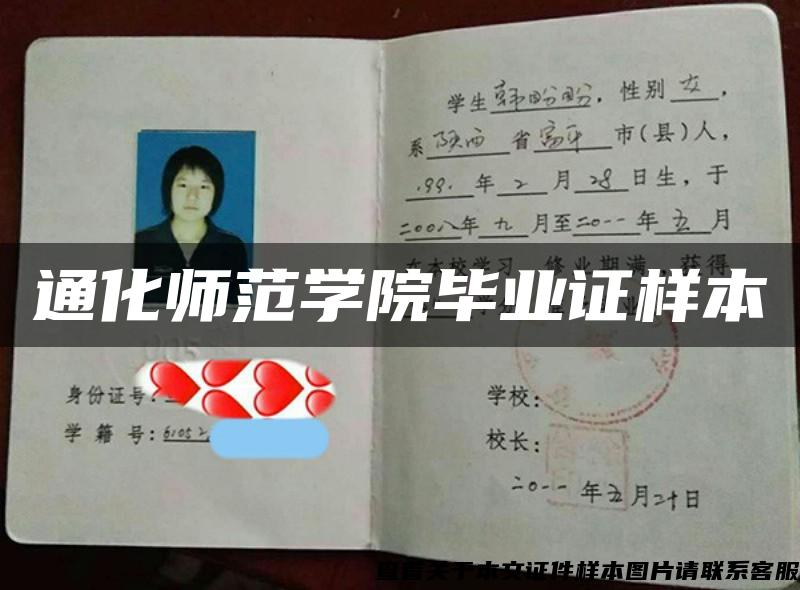 学生韩盼盼，性别女，
系陕西省富平市(县)人，
1991年2月28日生，于
二00八年九月至二0一一年五月
在本校学习 修业期满，获得
通化师范学院毕业证样本
身份证号：
学籍号：61052
学校：
校长：
二0一一年五月二十日
查看关于本文证件样本图片请联系客服